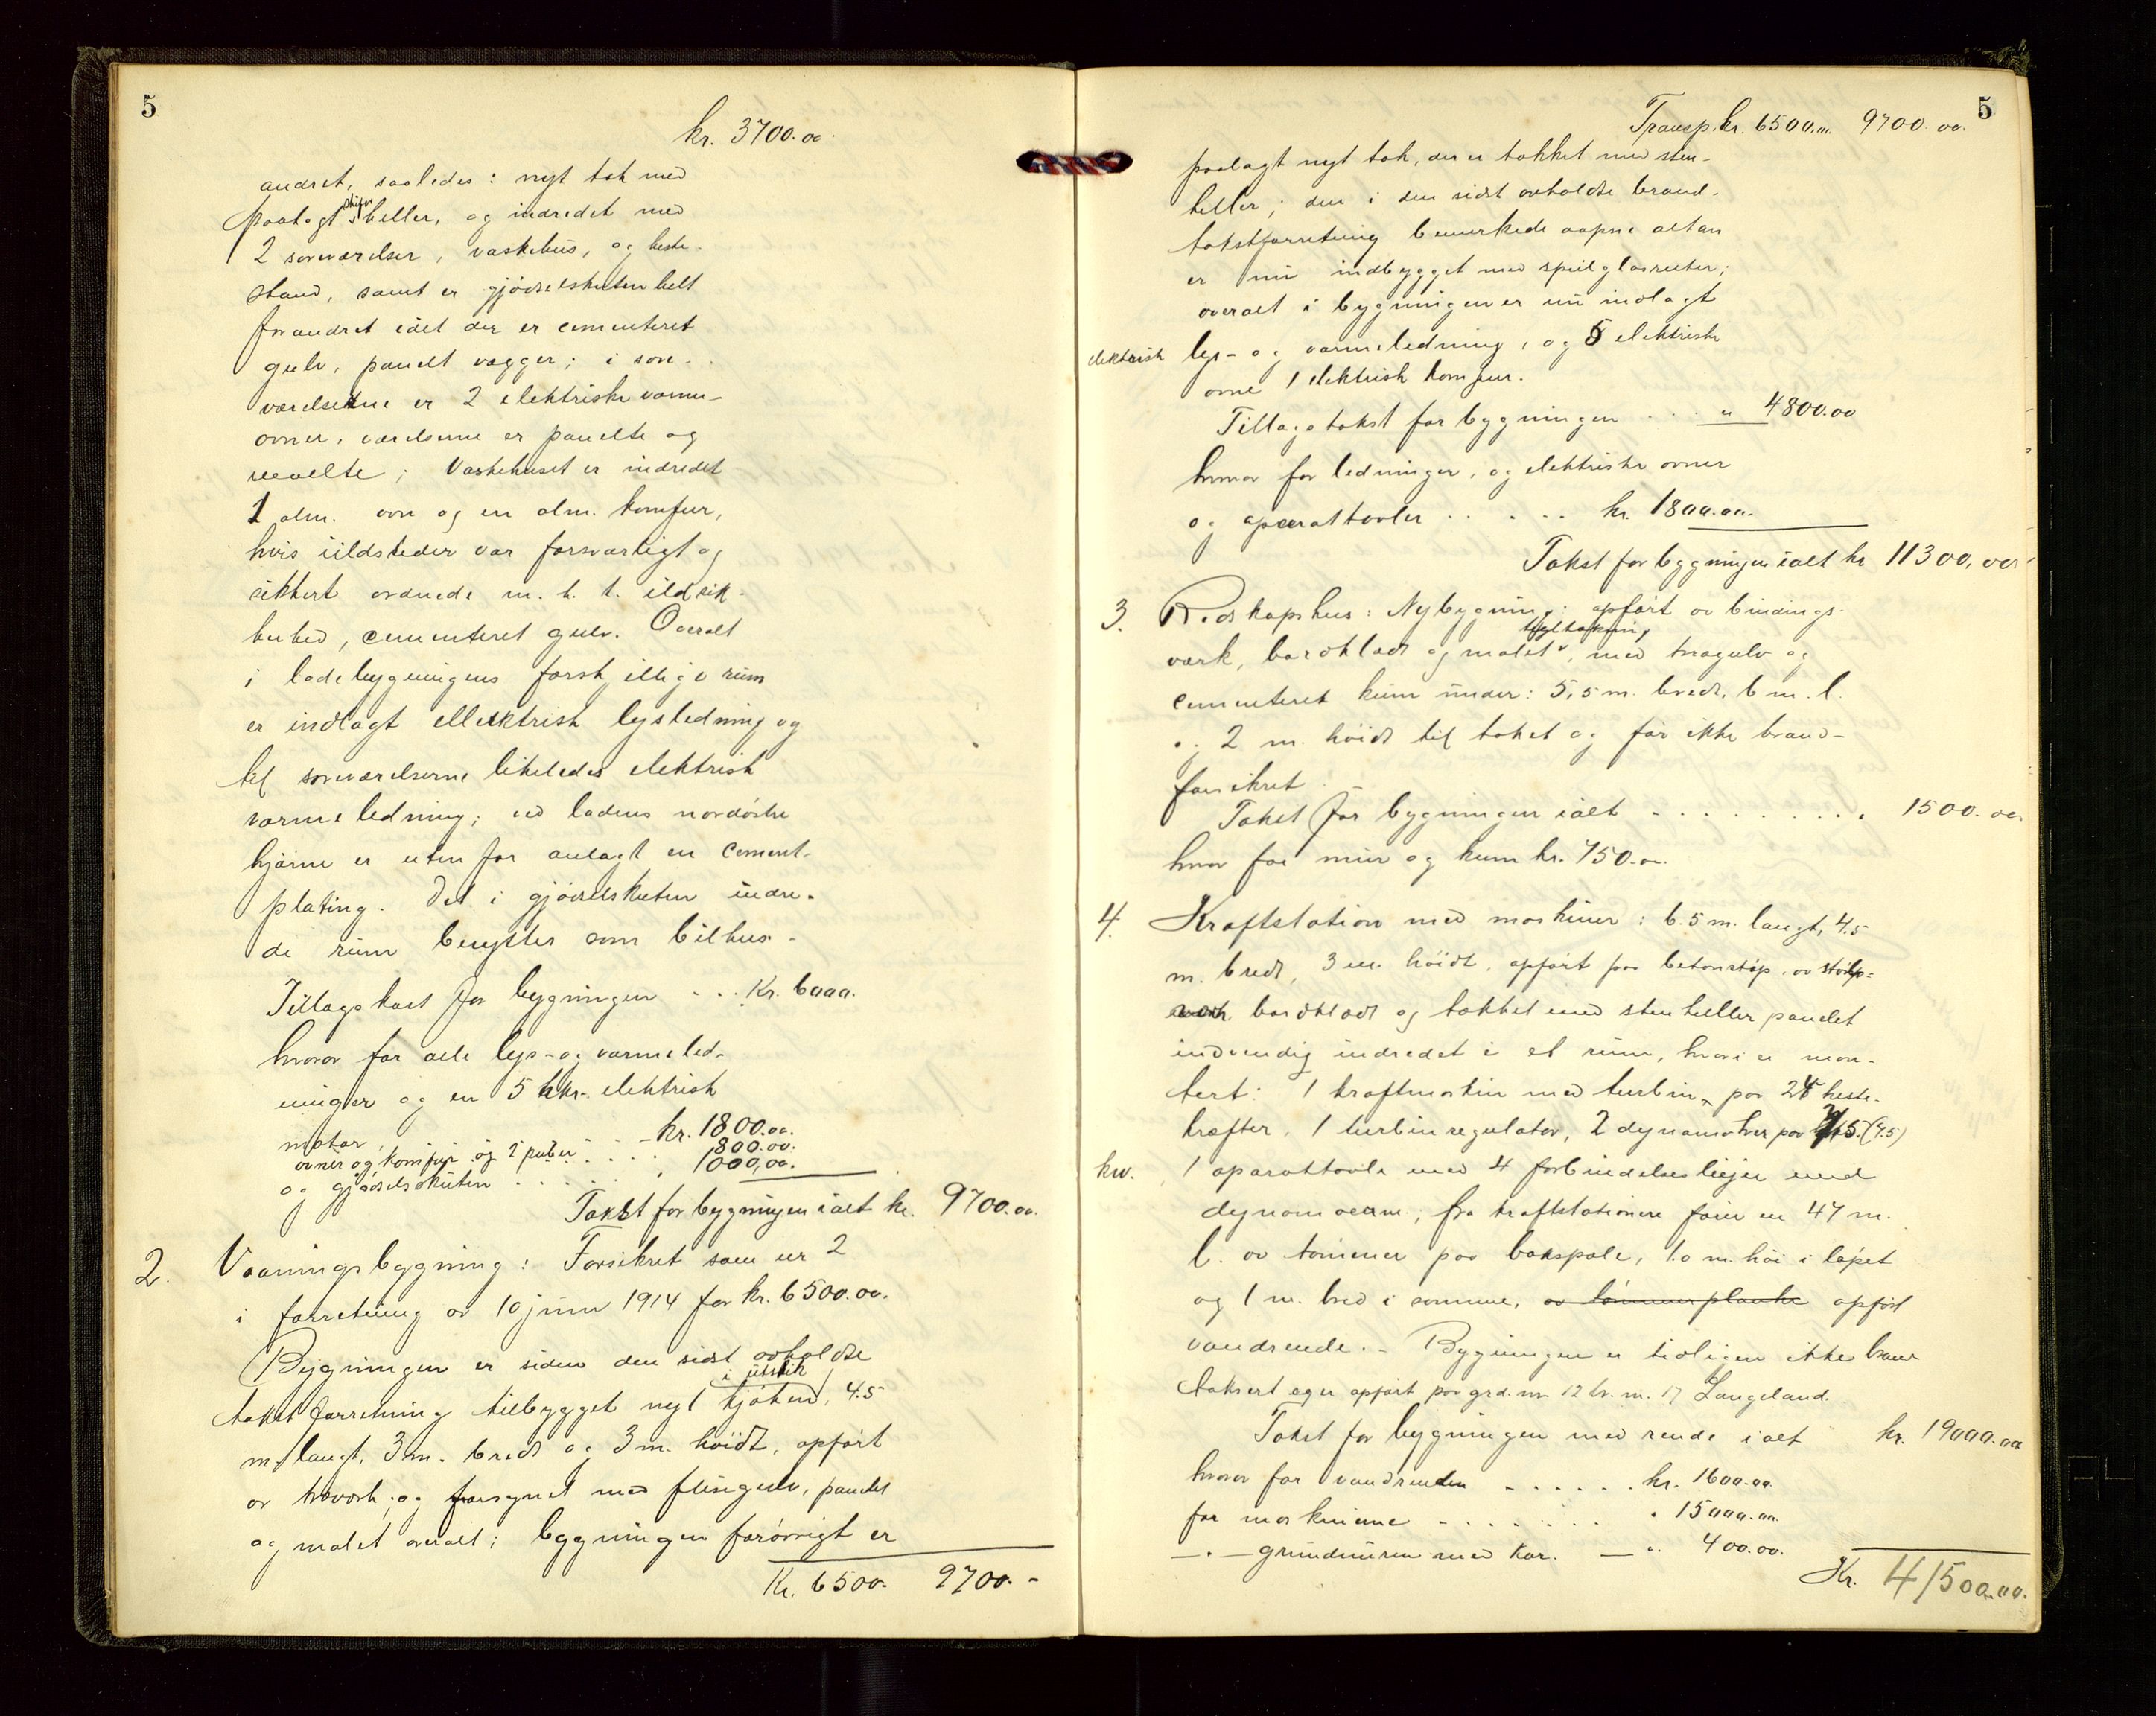 5
kr. 3700.00
andret, saaledes: nyt tak med
paalagt skifer heller, og indredet med
2 soveværelser, vaskehus, og heste-
stand, samt er gjødselskuten helt
forandret idet der er cementeret
gulv, panelt vægger; i sove-
værelserne er 2 elektriske varme-
ovner, værelserne er panelte og
malte; Vaskehuset er indredet
1 alm. ovn og en alm. komfur,
hvis ildsteder var forsvarligt og
sikkert ordnede m. h. t. ildsik-
kerhed, cementeret gulv. Overalt
i ladebygningens forskjellige rum
er indlagt ellektrisk lysledning og
til soveværelserne likeledes elektrisk
varmeledning; ved ladens nordøstre
hjørne er utenfor anlagt en cement-
plating. Det i gjødselskuten indre-
de rum benyttes som bilhus.
Tillagskast for bygningen ... Kr. 6000.
hvorav for alle lys- og varmeled-
ninger og en 5 hkr. elektrisk
motor, - kr. 1800.00.
ovner og komfur og 2 ... 800.00.
og gjødselskuten ..... " 1000,00.
Takst for bygningen ialt kr. 9700.00.
2. Vaaningsbygning: Forsikret som nr 2
i forretning av 10 juni 1914 for kr. 6500.00.
Bygningen er siden den sidst avholdte
i utstik
takstforretning tilbygget nyt kjøken, 4.5
m. langt, 3 m. bredt og 3 m. høidt, opført
av træverk, og forsynet med flisgulv, panelet
og malet overalt; bygningen forøvrigt er
Kr. 6500. 9700.-
5
Transp. kr. 6500.00. 9700.00.
paalagt nyt tak, der er tækket med sten-
heller; den i den sidst avholdte brand-
takstforretning bemerkede aapne altan
er nu indbygget med speilglasruter;
overalt i bygningen er nu indlagt
elektrisk lys- og varmeledning, og 5 elektriske
ovne 1 elektrisk komfur.
Tillagstakst for bygningen ... " 4800.00
hvorav for ledninger, og elektriske ovner
og aparattavler ..... kr. 1800.00.
Takst for bygningen ialt kr 11300,00
3. Redskapshus: Nybygning: opført av bindings-
tegltækning
verk, bordklædt og malet, med trægulv og
cementeret kum under: 5,5 m. bredt, 6 m. l.
og 2 m. høidt til taket og før ikke brand-
forsikret.
Takst for bygningen ialt ......... 1500.00
hvorav for mur og kum kr. 750.00.
4. Kraftstation med maskiner: 6.5 m. langt, 4.5
m. bredt, 3 m. høidt, opført paa betonstøp. av stolp-
verk bordklædt og tækket med stenheller panelet
indvendig indredet i et rum, hvori er mon-
tert: 1 kraftmaskin med turbin, paa 24 heste-
kræfter, 1 turbinregulator, 2 dynamoer paa 7,5 (4.5)
kw. 1 aparattavle med 4 forbindelsesliser med
dynamoerne; fra kraftstationen fører en 47 m.
l. av tømmer paa bakspæle, 1.0 m. høi i løpet
og 1 m. bred i somme, av tømmerplanke opført
vandrende. - Bygningen er tidligere ikke brand-
taksert og er opført paa grd. nr 12 br. nr. 17 Langeland.
Takst for bygningen med rende ialt kr. 19000.00
hvorav for vandrenden ...... kr. 1600.00.
for maskinene ....... " 15000.00.
— " — grundmuren med kar. — " 400.00.
Kr. 41500.00.